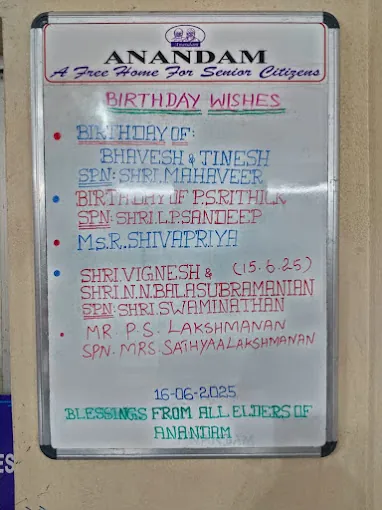 Anandam
ANANDAM
A Free Home For Senior Citizens
BIRTHDAY WISHES
BIRTHDAY OF:
BHAVESH & TINESH
SPN: SHRI.MAHAVEER
BIRTHDAY OF P.S.RITHICK
SPN: SHRI.L.P.SANDEEP
Ms.R.SHIVAPRIYA
SHRI.VIGNESH & (15.6.25)
SHRI.N.N.BALASUBRAMANIAN
SPN: SHRI.SWAMINATHAN
MR. P.S. LAKSHMANAN
SPN. MRS. SATHYAALAKSHMANAN
16-06-2025
BLESSINGS FROM ALL ELDERS OF
ANANDAM
ES